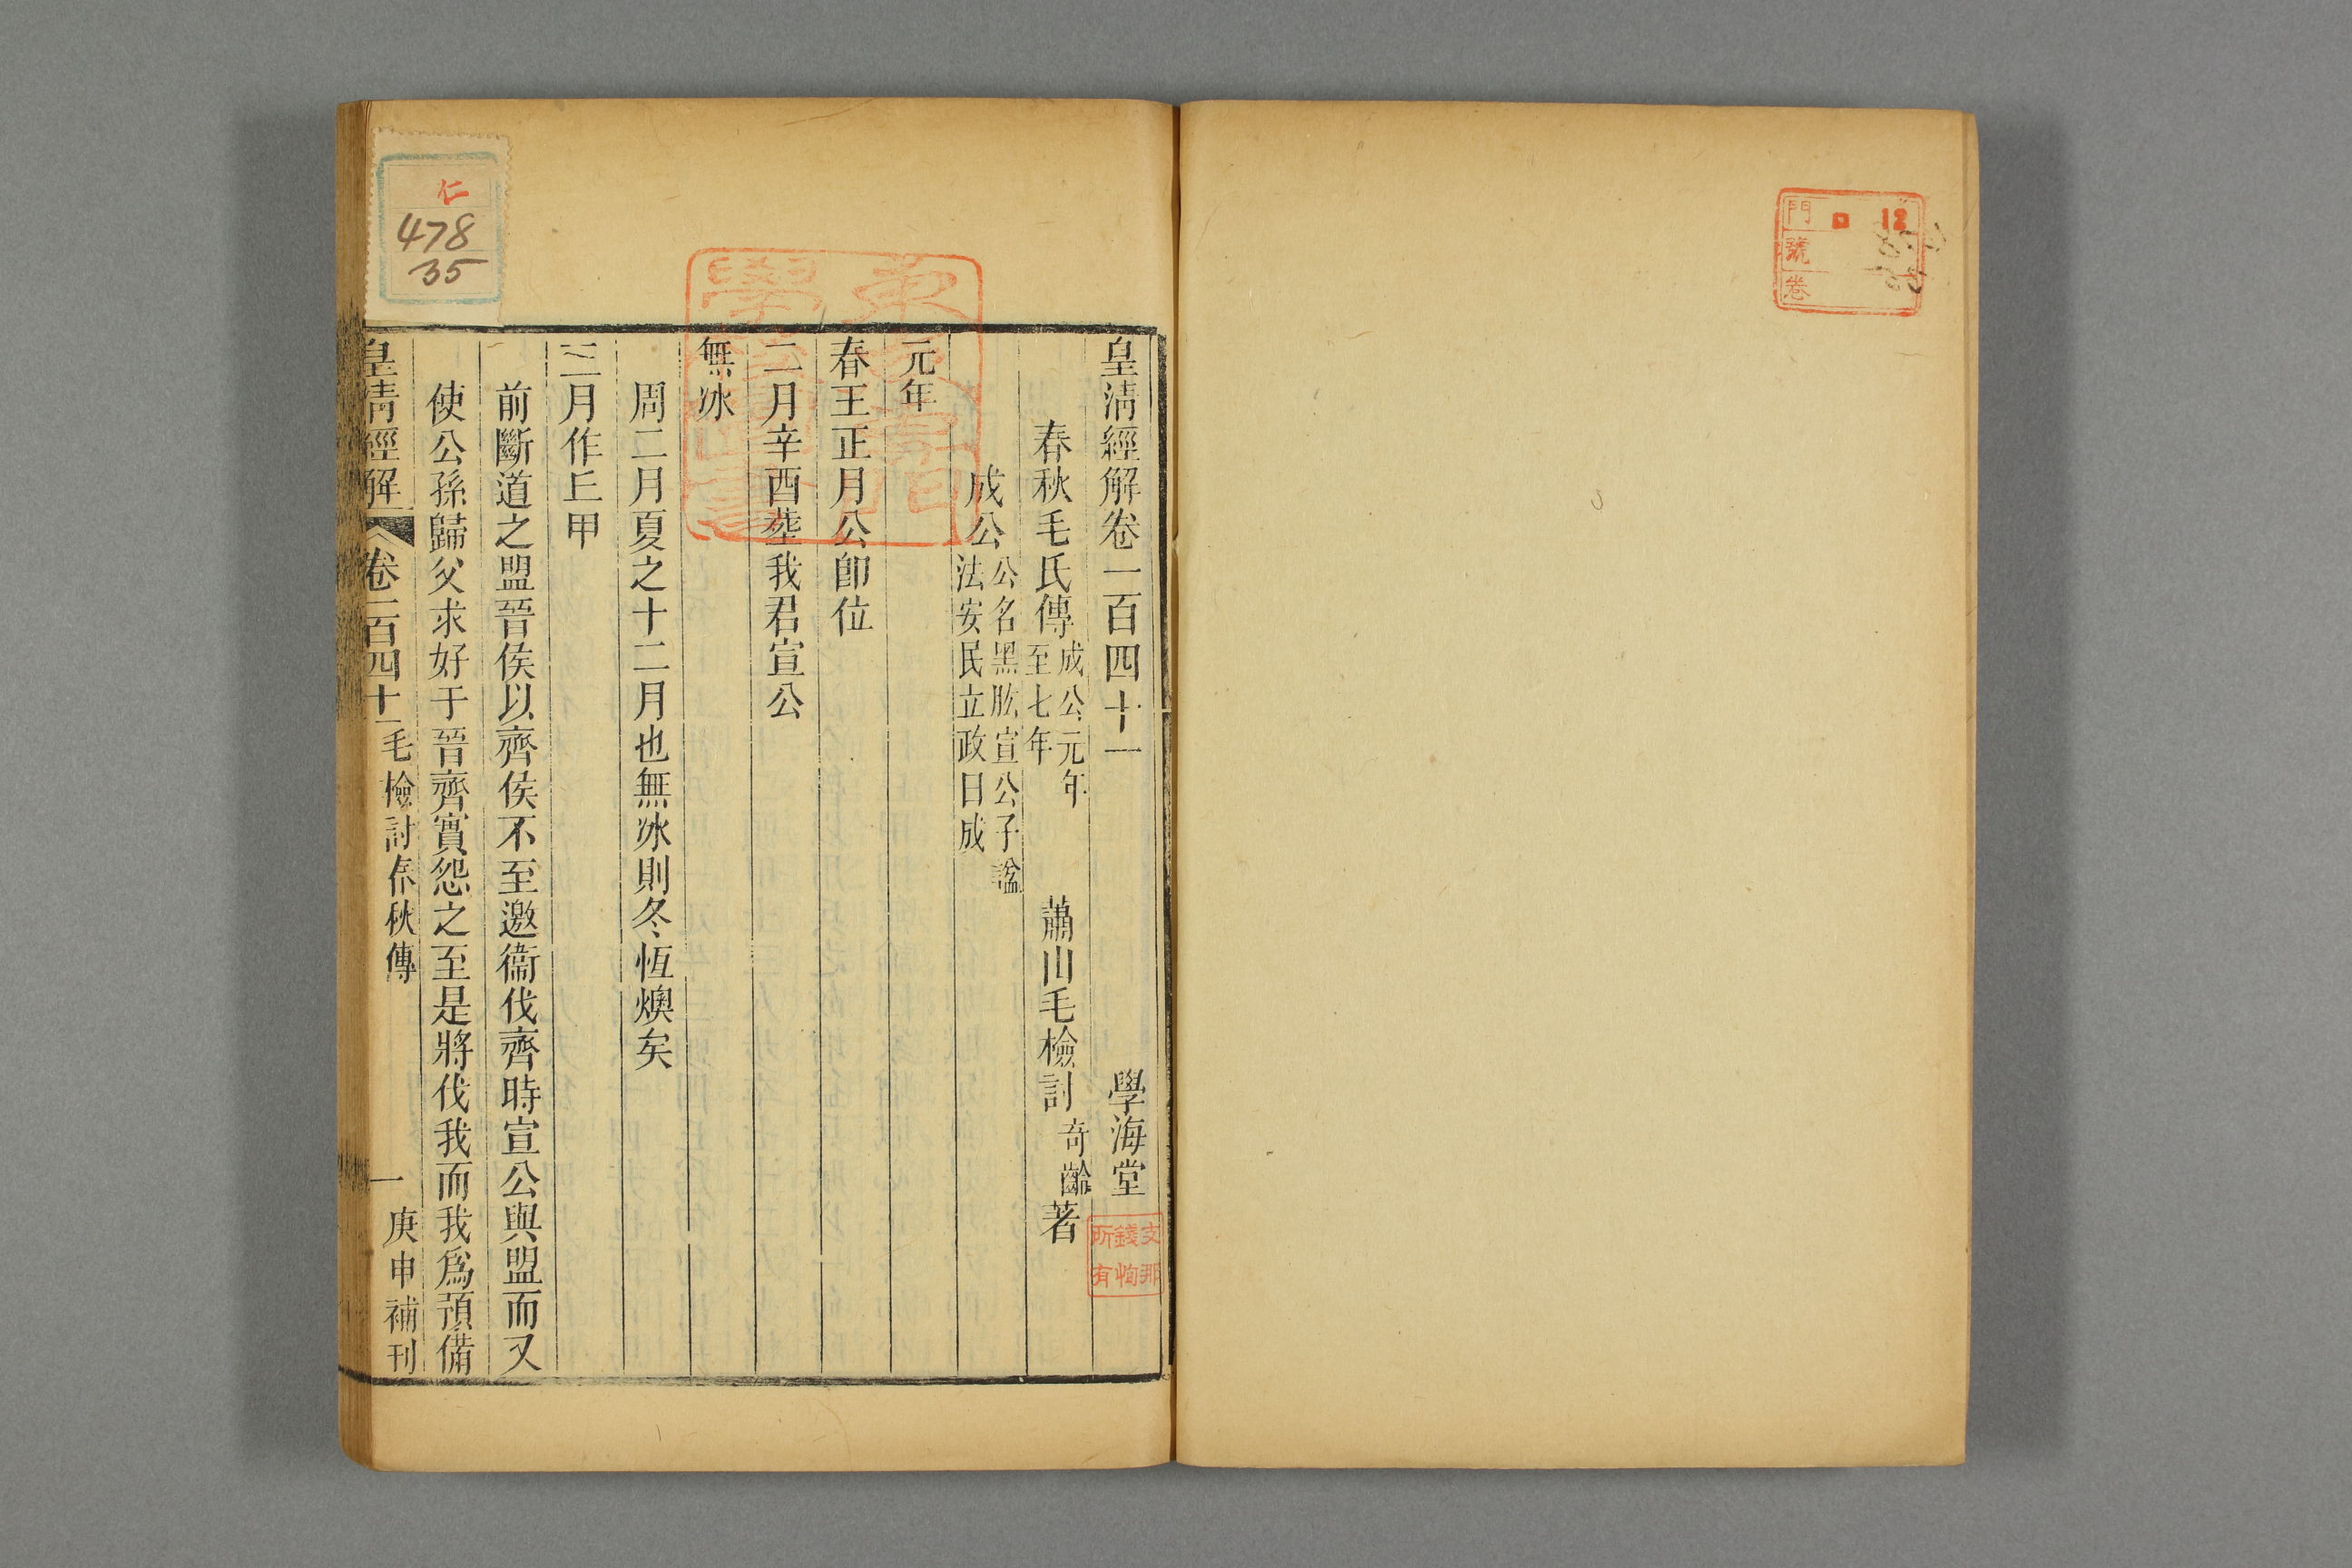 門 ロ 12
號
卷
皇清經解卷一百四十一 學海堂
支那
錢恂
所有
春秋毛氏傳 成公元年至七年 蕭山毛檢討奇齡著
成公 公名黑肱宣公子諡法安民立政曰成
元年
春王正月公卽位
二月辛酉葬我君宣公
無冰
周二月夏之十二月也無冰則冬恆燠矣
三月作丘甲
前斷道之盟晉侯以齊侯不至邀衞伐齊時宣公與盟而又
使公孫歸父求好于晉齊實怨之至是將伐我而我爲預備
皇清經解 卷一百四十一 毛檢討春秋傳 一 庚申補刊
仁
478
35